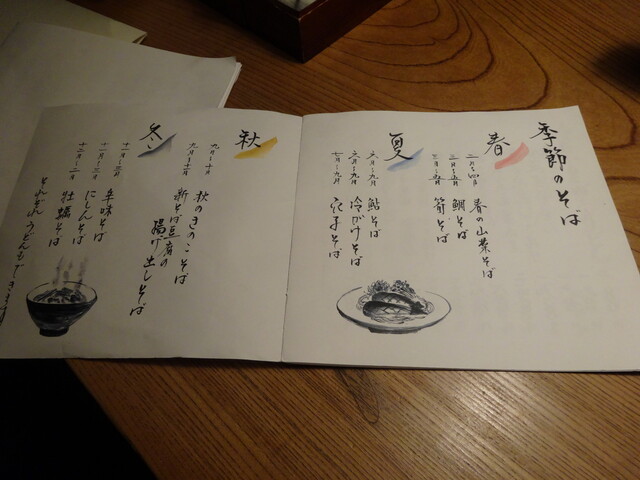 季節のそば
春
二月〜四月 春の山菜そば
三月〜五月 鯛そば
四月〜五月 筍そば
夏
六月〜九月 鮎そば
六月〜九月 冷かけそば
七月〜八月 茄子そば
秋
九月〜十月 秋のきのこそば
九月〜十一月 新そば豆腐の
揚げ出しそば
冬
十一月〜三月 辛味そば
十二月〜三月 にしんそば
十二月〜二月 牡蠣そば
それぞれうどんもできます